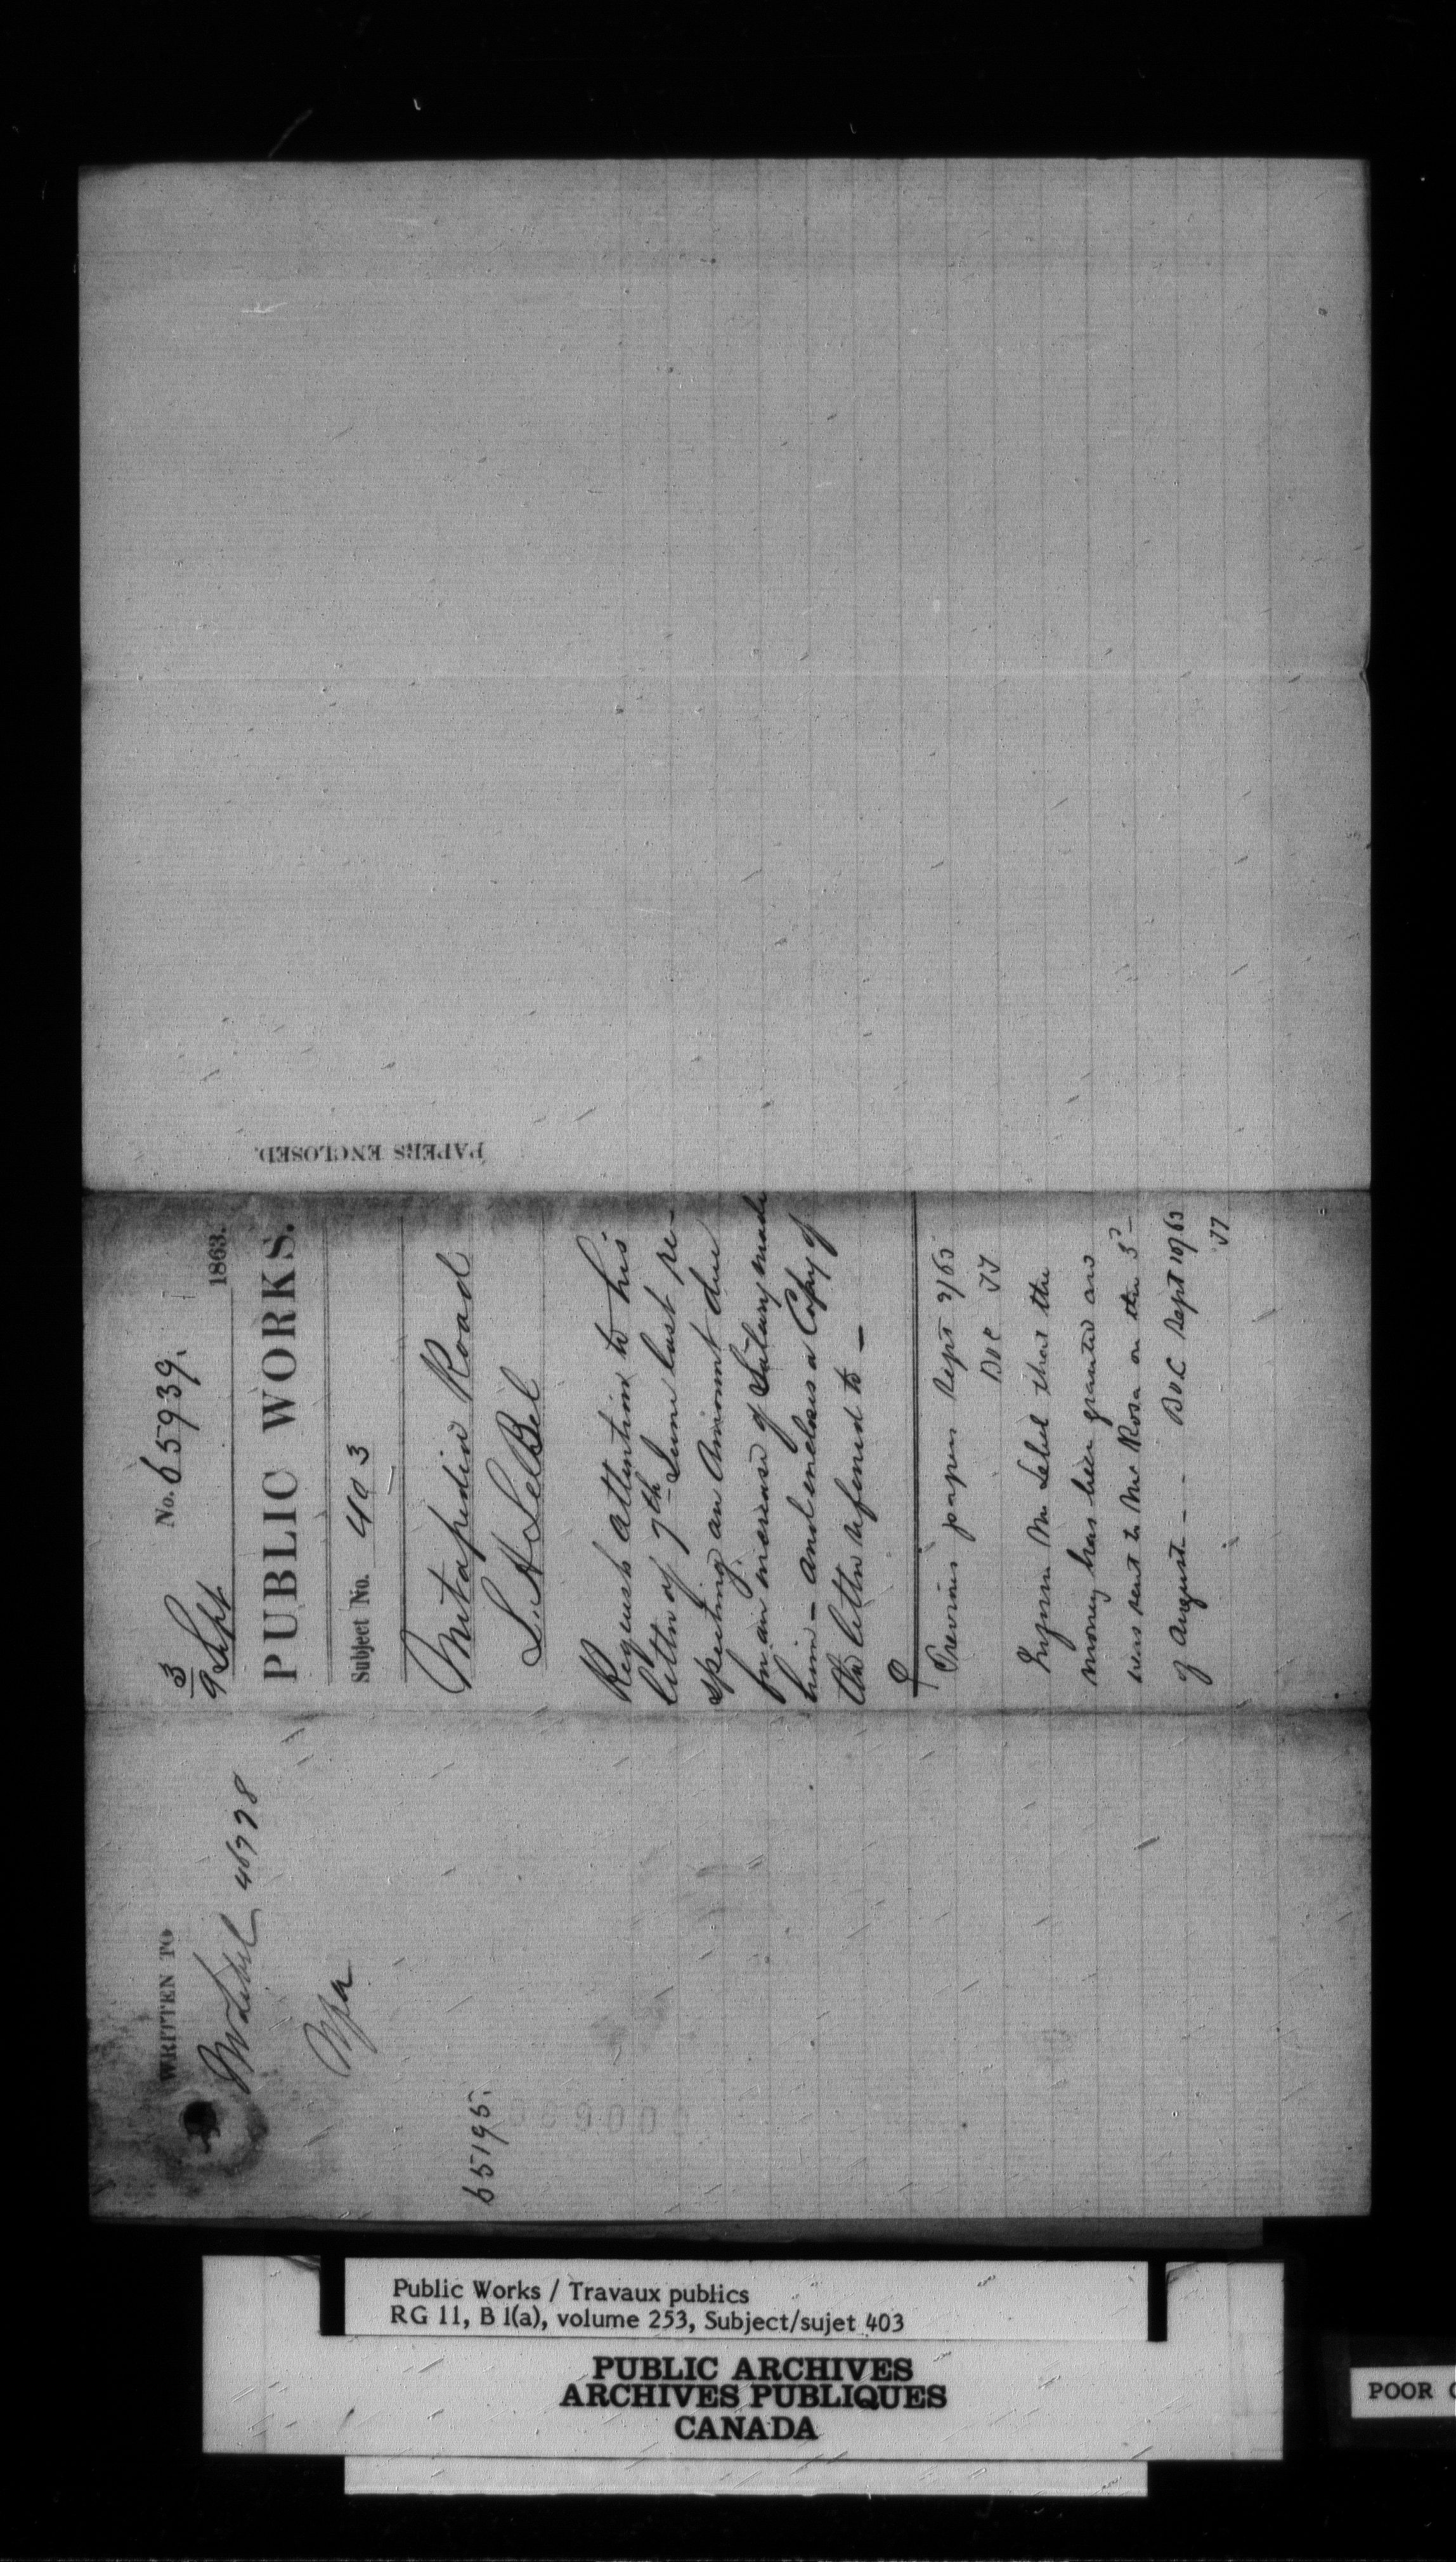 PAPERS ENCLOSED.
No. 65939.
3
9 Sept 1863.
PUBLIC WORKS.
Subject No. 403
Matapedia Road
L. A. LeBel
Requests attention to his
letter of 7th June last re-
specting an Amount due
for an increase of Salary made
him - and encloses a Copy of
the letter referred to -
Previous papers Sept 9/63
Inform Mr Lebel that the
money has been granted and
was sent to Mr Rosa on the 3d
of August - Sept 10/63
WRITTEN TO
Mr Lebel 46778
65195.
Public Works / Travaux publics
RG 11, B 1(a), volume 253, Subject/sujet 403
PUBLIC ARCHIVES
ARCHIVES PUBLIQUES
CANADA
POOR